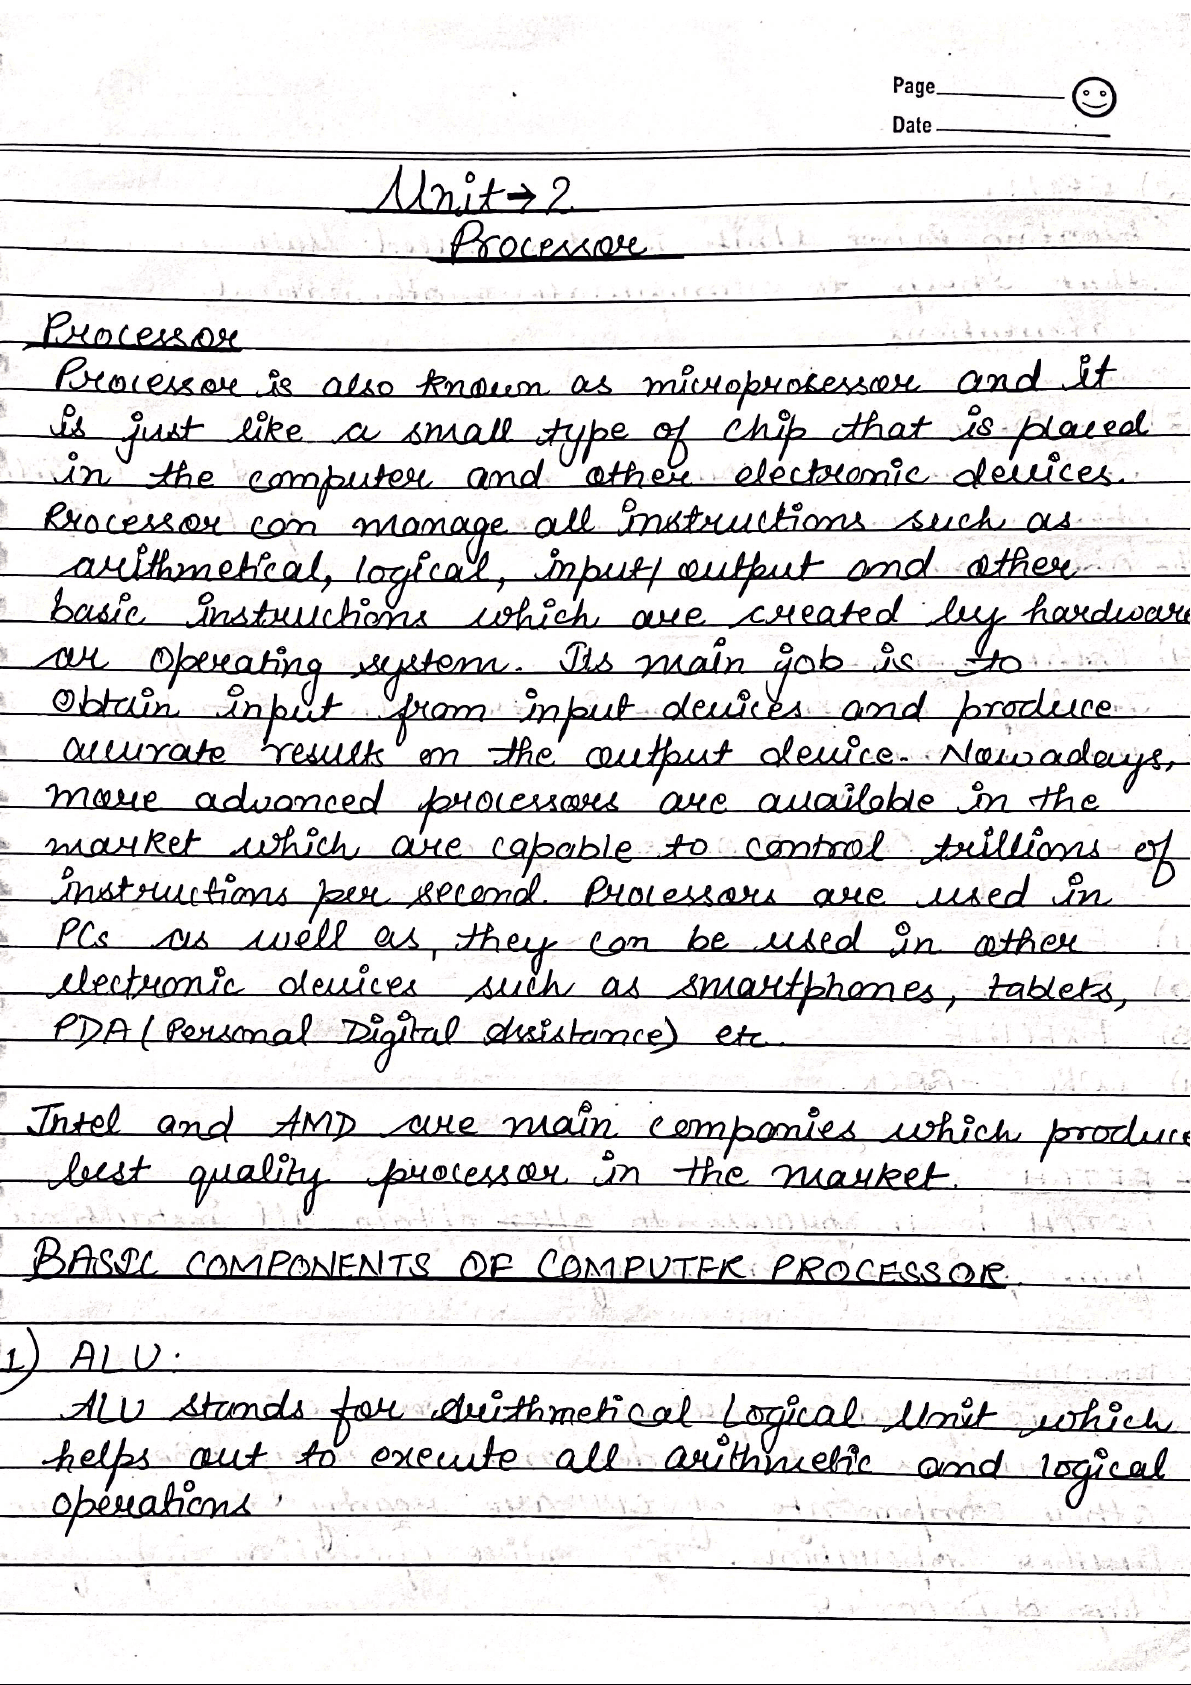 Page
Date
Unit → 2
Processor
Processor
Processor is also known as microprocessor and it
is just like a small type of chip that is placed
in the computer and other electronic devices.
Processor can manage all instructions such as
arithmetical, logical, input/output and other
basic instructions which are created by hardware
or operating system. Its main job is to
obtain input from input devices and produce
accurate results on the output device. Nowadays,
more advanced processors are available in the
market which are capable to control trillions of
instructions per second. Processors are used in
PCs as well as, they can be used in other
electronic devices such as smartphones, tablets,
PDA (Personal Digital Assistance) etc.
Intel and AMD are main companies which produce
best quality processor in the market.
BASIC COMPONENTS OF COMPUTER PROCESSOR.
1) ALU.
ALU stands for Arithmetical Logical Unit which
helps out to execute all arithmetic and logical
operations.